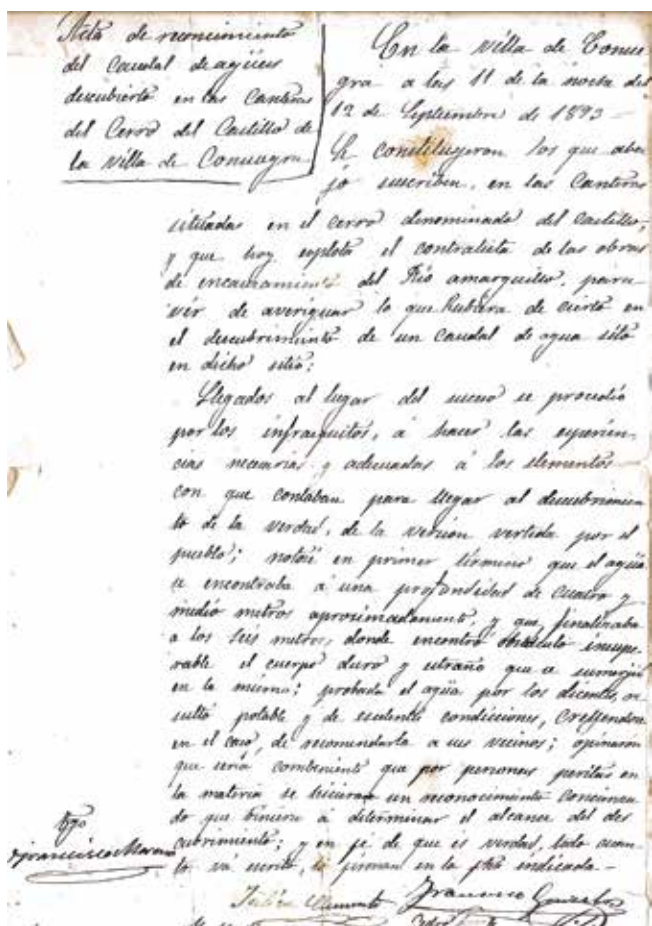 Acta de reconocimiento
del Caudal de agüas
descubierto en las Canteras
del Cerro del Castillo de
la villa de Consuegra
En la villa de Consue
gra a las 11 de la noche del
12 de Septiembre de 1893 —
Se constituyeron los que aba
jo suscriben, en las Canteras
situadas en el cerro denominado del castillo,
y que hoy esplota el contratista de las obras
de encauzamiento del Río amarguillo, para
vér de averiguar lo que hubiera de cierto en
el descubrimiento de un caudal de agua sito
en dicho sitio:
Llegados al lugar del suceso se procedio
por los infraescritos, á hacer las esperien
cias necesarias y adecuadas á los elementos —
con que contaban para llegar al descubrimien
to de la verdad, de la version vertida por el
pueblo; notose en primer término que el agüa
se encontraba á una profundidad de cuatro y
medio metros aprosimadamente, y que finalizaba
a los seis metros, donde encontró obstaculo insupe
rable el cuerpo duro y estraño que se sumergió
en la misma; probada el agüa por los dicentes, re
sultó potable y de escelentes condicciones, Creyendose
en el caso, de recomendarla a sus vecinos; opinaron
que seria combeniente que por personas peritas en
la materia se hiciera un reconocimiento
do que biniera á determinar el alcance del des
cubrimiento; y en fé de que es verdad, todo cuan
to vá escrito, lo firman en la fha indicada. —
Tgo
Francisco Moreno
Julián Francisco